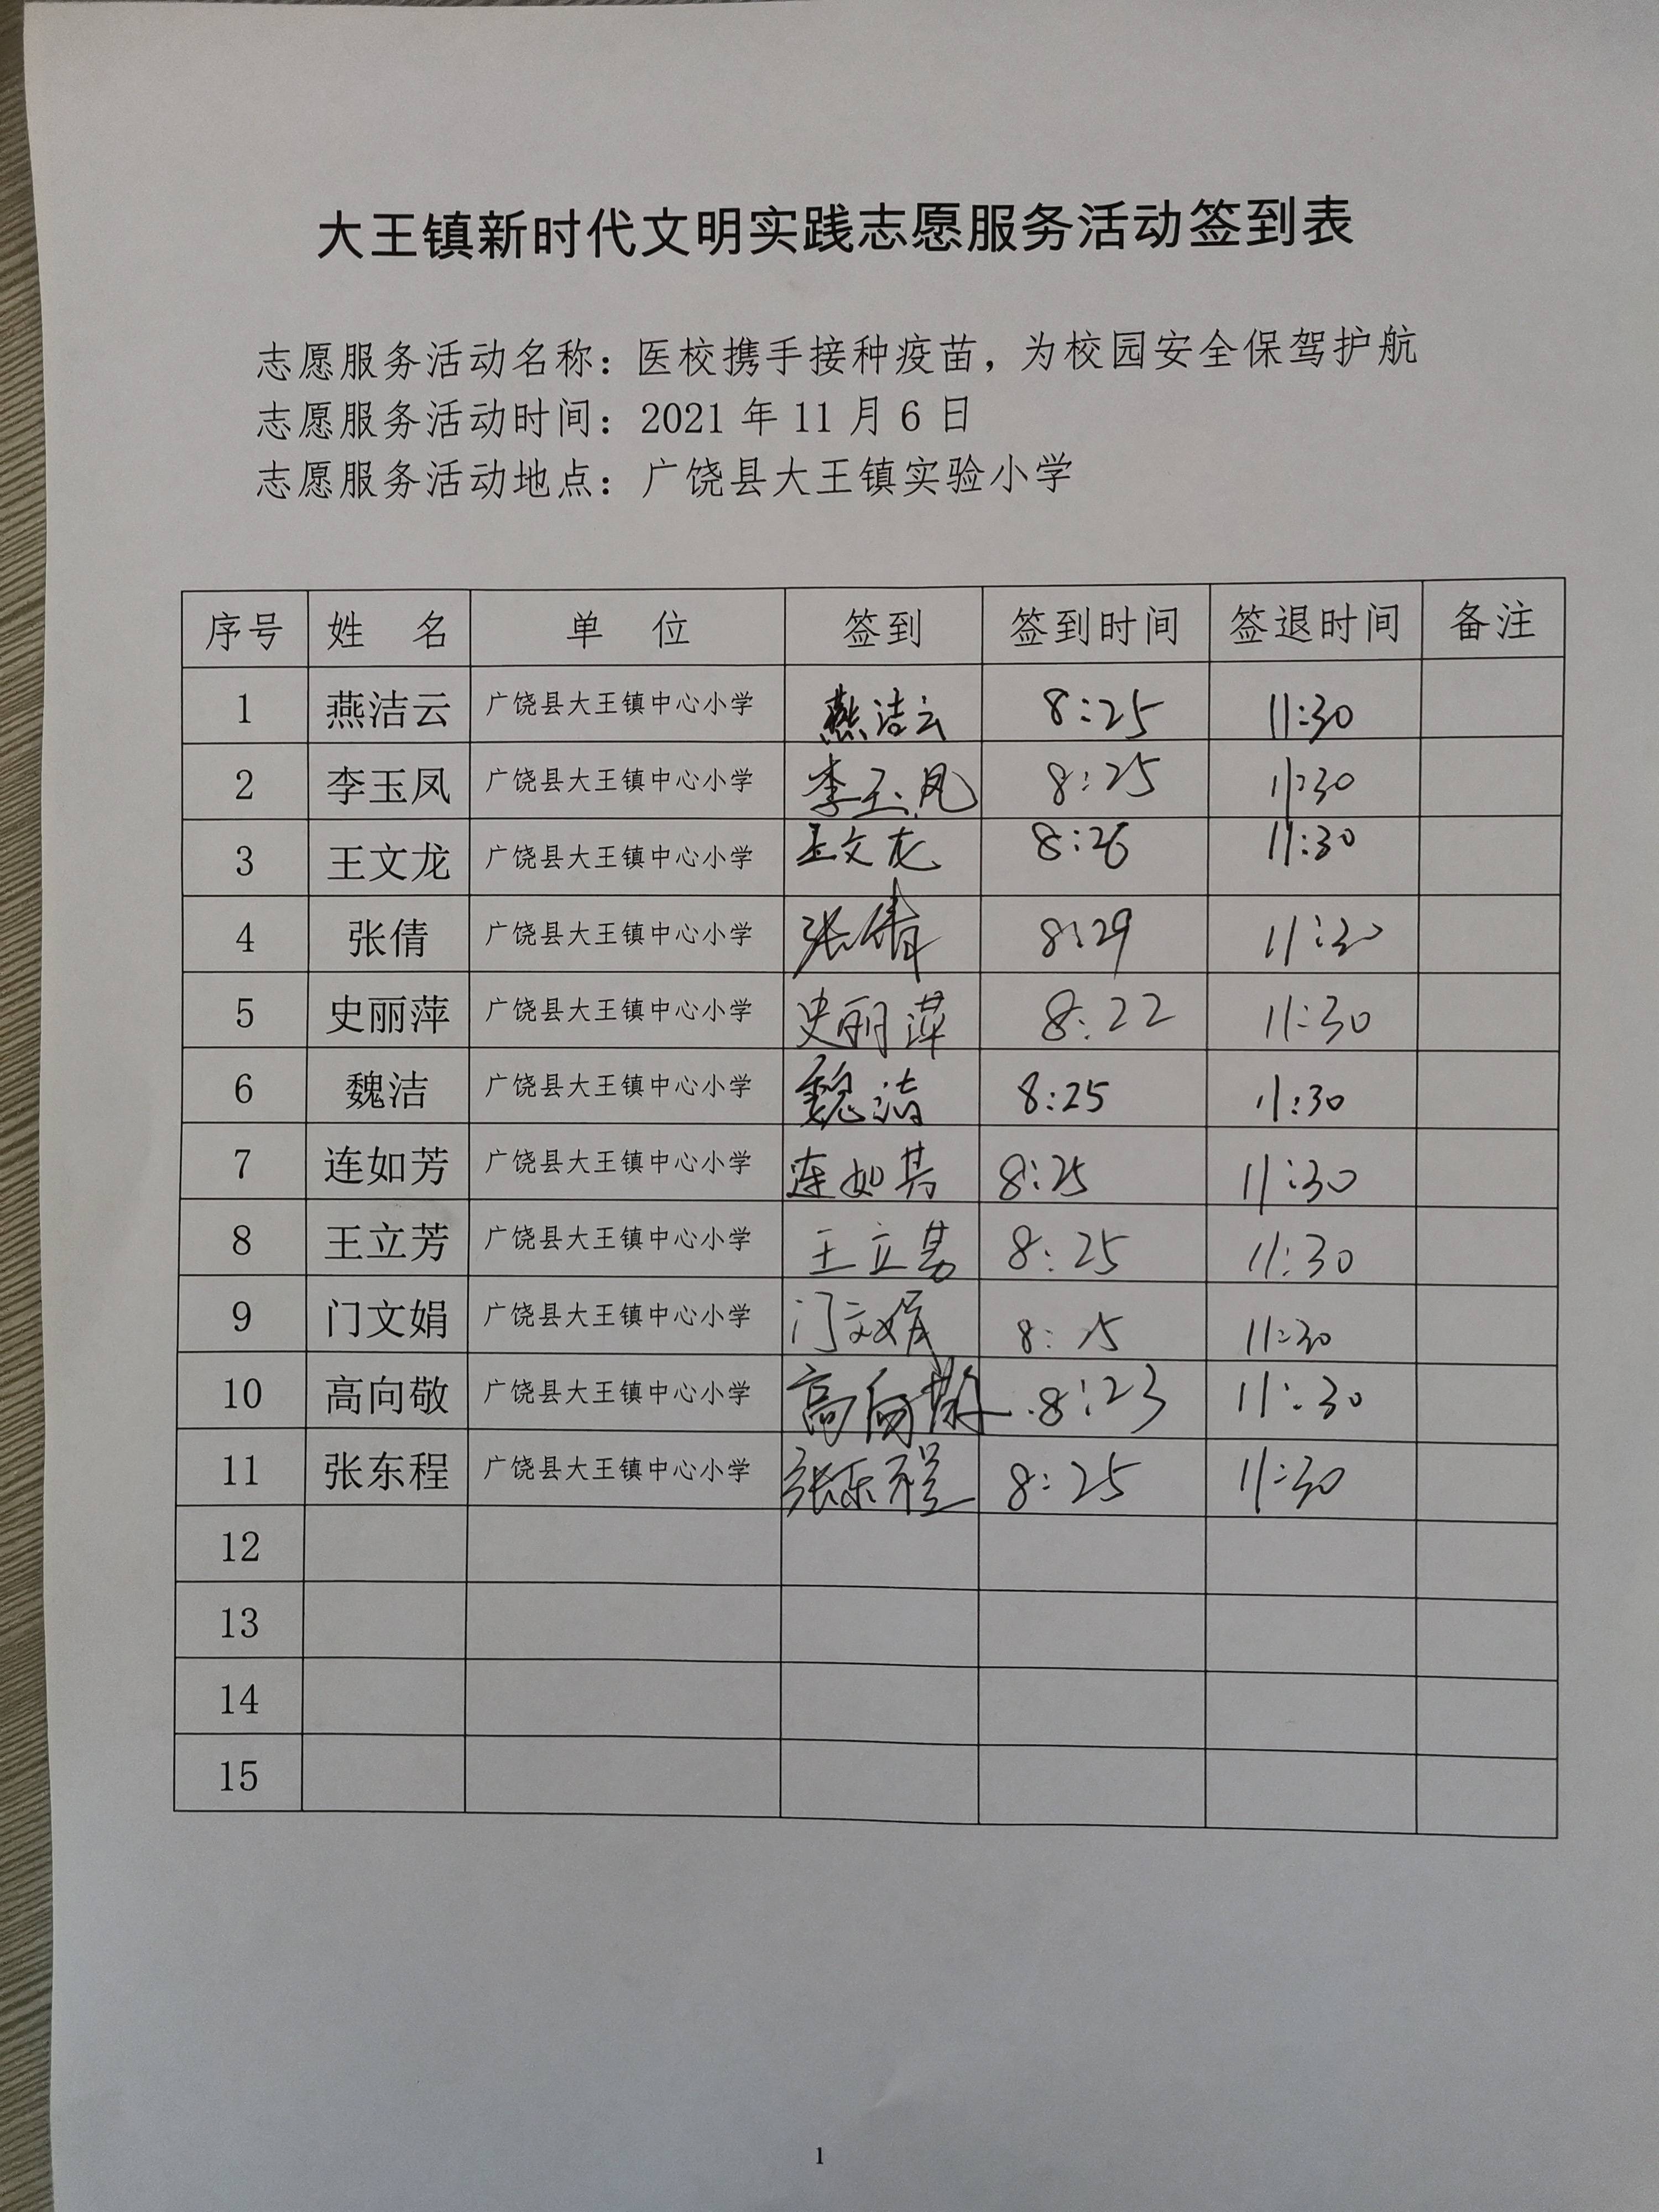 大王镇新时代文明实践志愿服务活动签到表
志愿服务活动名称：医校携手接种疫苗，为校园安全保驾护航
志愿服务活动时间：2021 年 11 月 6 日
志愿服务活动地点：广饶县大王镇实验小学
序号 姓 名 单 位 签到 签到时间 签退时间 备注
1 燕洁云 广饶县大王镇中心小学 燕洁云 8:25 11:30
2 李玉凤 广饶县大王镇中心小学 李玉凤 8:25 11:30
3 王文龙 广饶县大王镇中心小学 王文龙 8:26 11:30
4 张倩 广饶县大王镇中心小学 张倩 8:29 11:30
5 史丽萍 广饶县大王镇中心小学 史丽萍 8:22 11:30
6 魏洁 广饶县大王镇中心小学 魏洁 8:25 11:30
7 连如芳 广饶县大王镇中心小学 连如芳 8:25 11:30
8 王立芳 广饶县大王镇中心小学 王立芳 8:25 11:30
9 门文娟 广饶县大王镇中心小学 门文娟 8:25 11:30
10 高向敬 广饶县大王镇中心小学 高向敬 8:23 11:30
11 张东程 广饶县大王镇中心小学 张东程 8:25 11:30
12
13
14
15
1